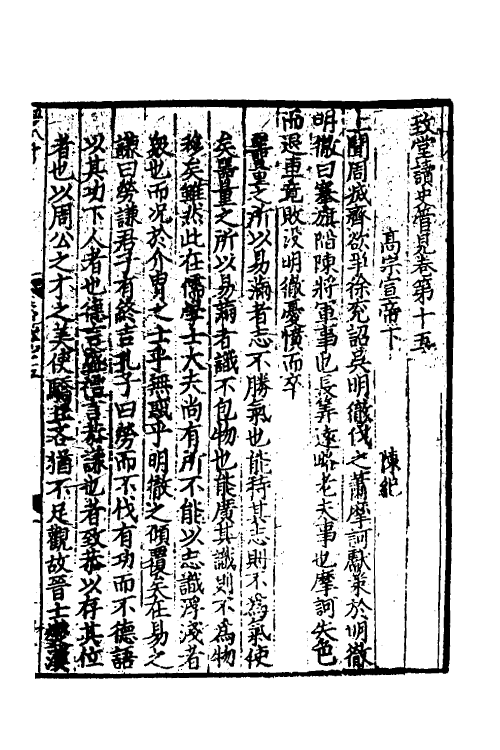 致堂讀史管見卷第十五
高宗宣帝下　陳紀
上聞周滅齊欲爭徐兗詔吳明徹伐之蕭摩訶獻策於明徹
明徹曰搴旗陷陳將軍事也長筭遠略老夫事也摩訶失色
而退軍竟敗沒明徹憂憤而卒
器量之所以易滿者志不勝氣也能持其志則不為氣使
矣器量之所以易滿者識不包物也能廣其識則不為物
移矣雖然此在儒學士大夫尚有所不能以志識浮淺者
衆也而況於介冑之士乎無惑乎明徹之傾覆矣在易之
謙曰勞謙君子有終吉孔子曰勞而不伐有功而不德語
以其功下人者也德言盛禮言恭謙也者致恭以存其位
者也以周公之才之美使驕且吝猶不足觀故晉士燮